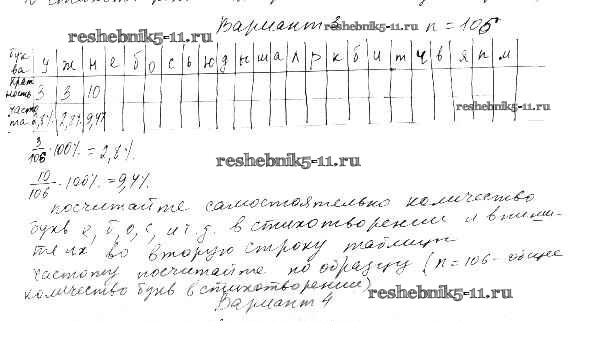 Вариант 3 n = 106
reshebnik5-11.ru
reshebnik5-11.ru
бук ва у ж н е б о с ь ю д ы ш а л р к б и т ч в я п м
крат ность 3 3 10
часто та 2,8% 2,8% 9,4%
reshebnik5-11.ru
3/106 · 100% = 2,8%
reshebnik5-11.ru
10/106 · 100% = 9,4%
посчитайте самостоятельно количество
букв е, б, о, с, и т.д. в стихотворении и впиши-
те их во вторую строку таблицы
частоту посчитайте по образцу (n = 106 - общее
количество букв в стихотворении)
reshebnik5-11.ru
Вариант 4